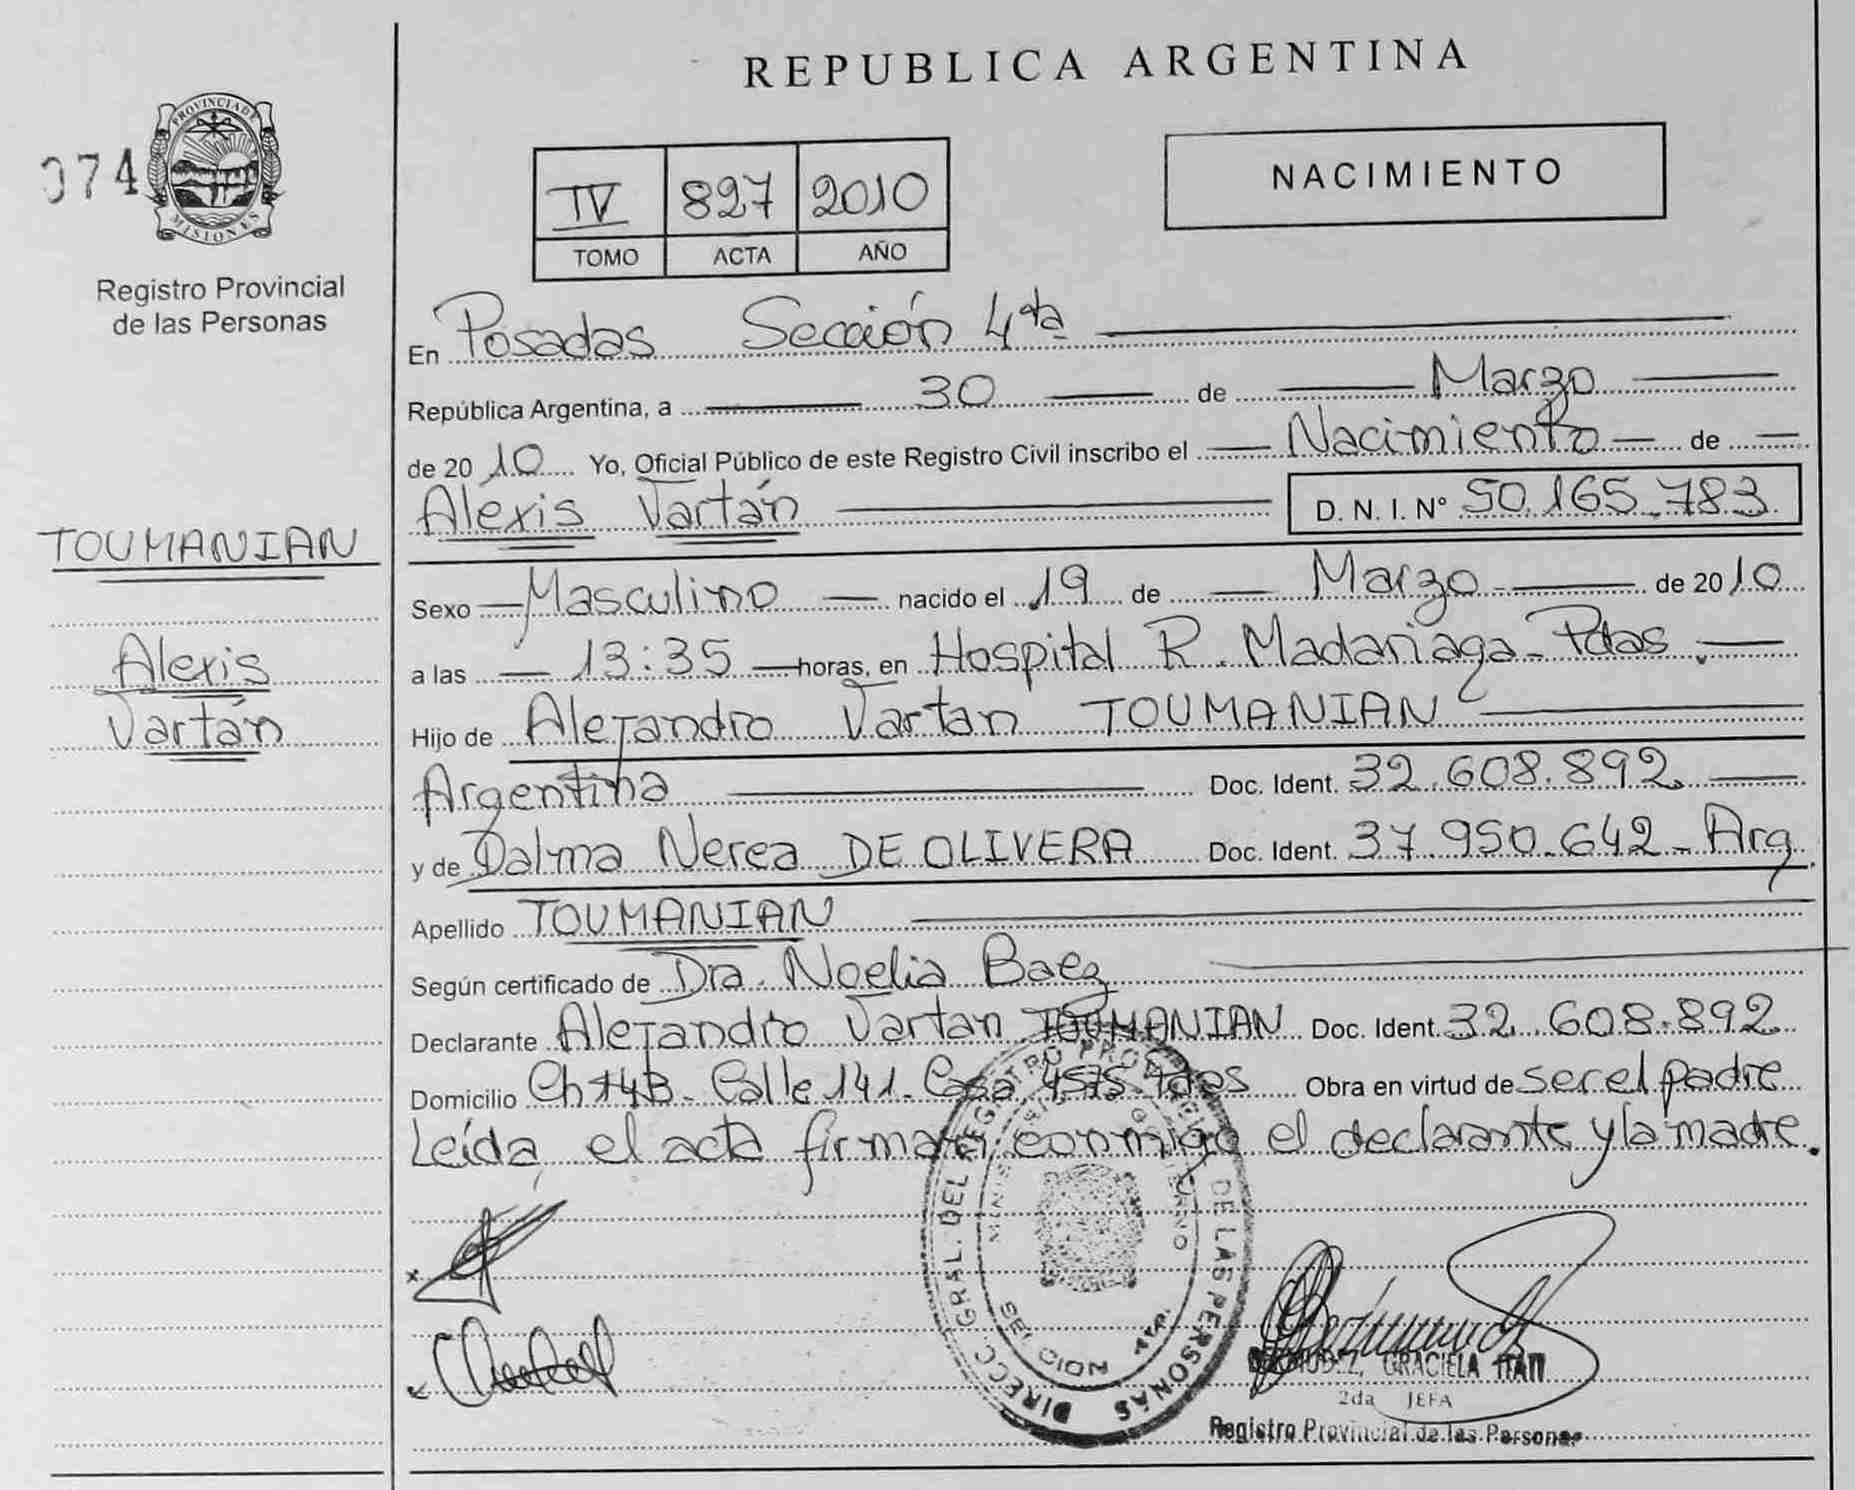 REPUBLICA ARGENTINA
074
PROVINCIA DE
MISIONES
Registro Provincial
de las Personas
IV 827 2010
TOMO ACTA AÑO
NACIMIENTO
TOUMANIAN
Alexis
Vartán
En Posadas Sección 4ta
República Argentina, a 30 de Marzo
de 2010 Yo, Oficial Público de este Registro Civil inscribo el Nacimiento de
Aléxis Vartán D. N. I. Nº 50.165.783
Sexo Masculino nacido el 19 de Marzo de 2010
a las 13:35 horas, en Hospital R. Madariaga - Pdas.
Hijo de Alejandro Vartan TOUMANIAN
Argentina Doc. Ident. 32.608.892
y de Dalma Nerea DE OLIVERA Doc. Ident. 37.950.642 - Arg
Apellido TOUMANIAN
Según certificado de Dra. Noelia Baez
Declarante Alejandro Vartan TOUMANIAN Doc. Ident. 32.608.892
Domicilio Ch 143 - Calle 141 - Casa 4575 - Pdas Obra en virtud de ser el padre
Leída el acta firman conmigo el declarante y la madre.
DIRECC. GRAL. DEL REGISTRO PROV. DE LAS PERSONAS
BERMUDEZ, GRACIELA ITATI
2da JEFA
Registro Provincial de las Personas